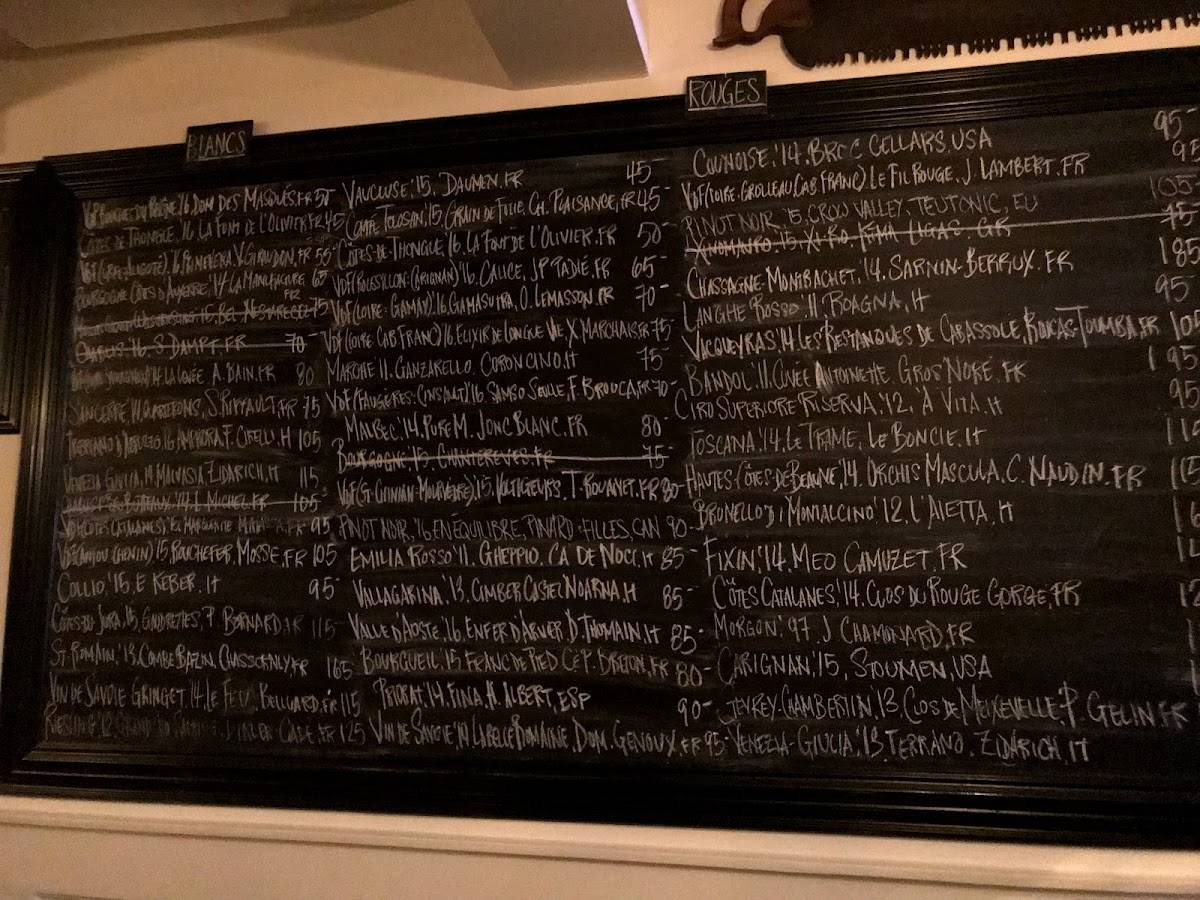 BLANCS
'16 DOM DES MASQUES FR 50
CÔTES DE THONGUE, '16 LA FONT DE L'OLIVIER FR 45
GIRAUDON, FR 55
BOURGOGNE CÔTES D'AUXERRE '14 LA MANUFACTURE 65
FR
75
'16 S. DAMPT, FR 70
A. BAIN, FR 80
SANCERRE, S. RIFFAULT, FR 75
'16 AMPHORA, F. CIRELLI, IT 105
VENEZIA GIULIA, MALVASIA ZIDARICH, IT 115
L. MICHEL, FR 105
FR 95
VDF (ANJOU CHENIN) '15 ROUCHEFER, MOSSE, FR 105
COLLIO, '15, E. KEBER, IT 95-
CÔTES DU JURA, '15, P. BORNARD, FR 115
ST. ROMAIN, '13, COMBE BAZIN, CHASSORNEY, FR 165
VIN DE SAVOIE GRINGET '14 LE FEU, BELLUARD, FR 115
RIESLING FR 125
VAUCLUSE '15, DAUMEN, FR 45-
COMTÉ TOLOSAN, '15 GRAIN DE FOLIE, CH. PLAISANCE, FR 45-
CÔTES-DE-THONGUE '16 LA FONT DE L'OLIVIER, FR 50-
VDF (ROUSSILLON: CARIGNAN) '16, CALICE, JP PADIÉ, FR 65-
VDF (LOIRE: GAMAY) '16, GAMASUTRA, O. LEMASSON, FR 70-
VDF (LOIRE CAB FRANC) '16 ELIXIR DE LONGUE VIE X. MARCHAIS, FR 75-
MARCHE '11, GANZARELLO, CORONCINO, IT 75-
VDF (FAUGÈRES: CINSAULT) '16 SAMSO SEULLE, F. BROUCA, FR 70-
MALBEC, '14, PURE M, JONC BLANC, FR 80-
BOURGOGNE '15, CHANTEREVES, FR 75-
VDF '15, VOLTIGEURS, T. ROUANET, FR 80-
PINOT NOIR, '16 EN ÉQUILIBRE, PINARD & FILLES, CAN 90-
EMILIA ROSSO '11, GHEPPIO, CA DE NOCI, IT 85-
VALLAGARINA '13, CIMBER CASTEL NOARNA, IT 85-
VALLE D'AOSTE, '16, ENFER D'ARVIER, D. THOMAIN, IT 85-
BOURGUEIL '15 FRANC DE PIED C & P. BRETON, FR 80-
PRIORAT, '14, FINA, M. ALBERT, ESP 90-
VIN DE SAVOIE, '14 LA BELLE ROMAINE, DOM. GENOUX, FR 95-
ROUGES
COUNOISE, '14, BROC CELLARS, USA 95-
VDF (LOIRE: GROLLEAU CAB FRANC) LE FIL ROUGE, J. LAMBERT, FR 95
PINOT NOIR, '15, CROW VALLEY, TEUTONIC, EU 105
XINOMAVRO, '15, XI-RO, KTIMA LIGAS, GR 75
CHASSAGNE-MONTBACHET, '14, SARNIN-BERRUX, FR 185
LANGHE ROSSO, '11, ROAGNA, IT 95
VACQUEYRAS, '14 LES RESTANQUES DE CABASSOLE, ROUCAS-TOUMBA, FR
BANDOL '11, CUVÉE ANTOINETTE, GROS'NORÉ, FR
CIRO SUPERIORE RISERVA, '12, 'A VITA, IT 95
TOSCANA '14, LE TRAME, LE BONCIE, IT
HAUTES-CÔTES DE BEAUNE, '14, ORCHIS MASCULA, C. NAUDIN, FR
BRUNELLO DI MONTALCINO '12, L'AIETTA, IT
FIXIN, '14, MEO CAMUZET, FR
CÔTES CATALANES, '14, CLOS DU ROUGE GORGE, FR
MORGON '97, J. CHAMONARD, FR
CARIGNAN '15, STOUMEN, USA
GEVREY-CHAMBERTIN, '13, CLOS DE MEIXEVELLE, P. GELIN, FR
VENEZIA-GIULIA, '13, TERRANO, ZIDARICH, IT